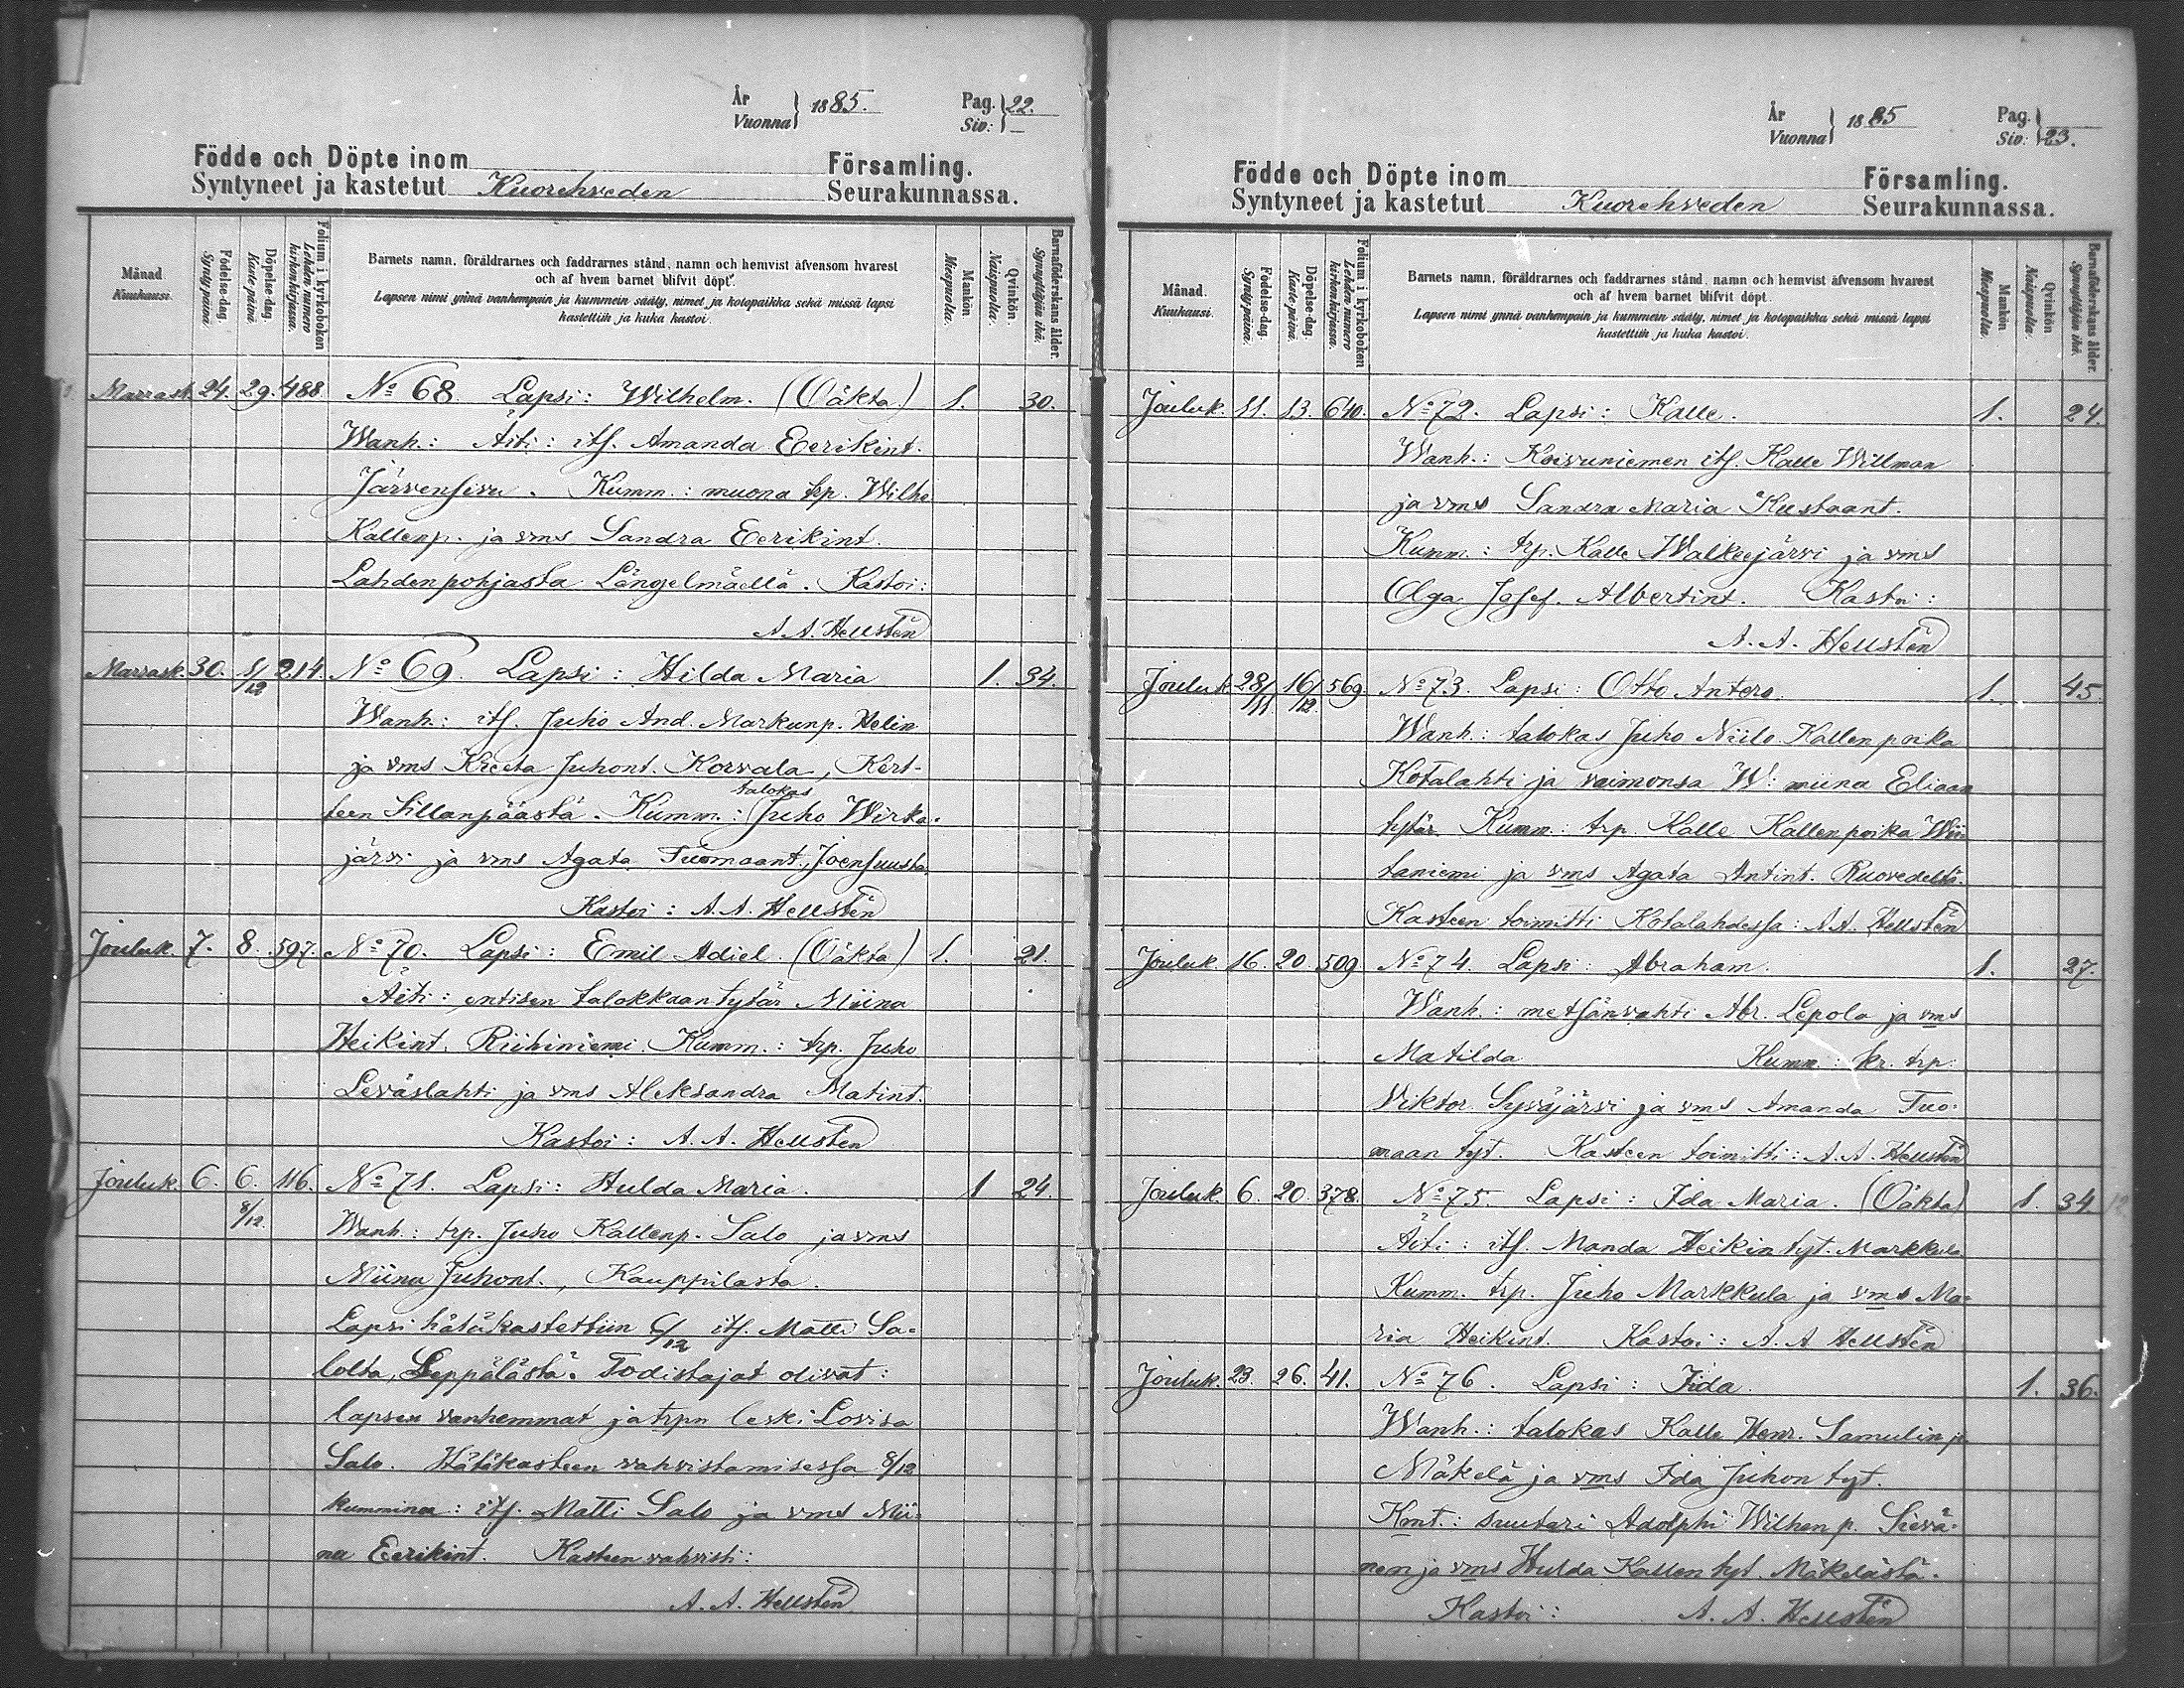 År
Vuonna } 1885. Pag. Siv: } 22.
Födde och Döpte inom Församling.
Syntyneet ja kastetut Kuorehveden Seurakunnassa.
Månad Kuukausi.
Födelse-dag. Synty-päivä.
Döpelse-dag. Kaste-päivä.
Folium i kyrkoboken Lehden numero kirkonkirjassa.
Barnets namn, föräldrarnes och faddrarnes stånd, namn och hemvist äfvensom hvarest
och af hvem barnet blifvit döpt.
Lapsen nimi ynnä vanhempain ja kummein sääty, nimet ja kotopaikka sekä missä lapsi
kastettiin ja kuka kastoi.
Mankön Miespuolta.
Qvinkön Naispuolta.
Barnaföderskans ålder. Synnyttäjän ikä.
Marrask. 24. 29. 488. No 68 Lapsi: Wilhelm. (Oäkta.) 1. 30.
Wanh.: Äiti: its. Amanda Eerikint.
Järvensivu. Kumm.: muona trp. Wilhe
Kallenp. ja vms Sandra Eerikint.
Lahdenpohjasta Längelmäellä. Kastoi:
A. A. Hellstén
Marrask. 30. 8/12 214. No 69. Lapsi: Hilda Maria 1. 34.
Wanh: its. Juho And. Markunp. Helin
ja vms Kreeta Juhont. Korvala, Kert-
talokas
teen Sillanpäästä. Kumm.: Juho Wirka-
järvi ja vms Agata Tuomaant., Joensuusta.
Kastoi: A. A. Hellstén
Jouluk. 7. 8. 597. No 70. Lapsi: Emil Adiel. (Oäkta) 1. 21.
Äiti: entisen talokkaan tytär Miina
Heikint. Riihiniemi. Kumm.: trp. Juho
Leväslahti ja vms Aleksandra Matint.
Kastoi: A. A. Hellstén
Jouluk. 6. 6. 116. No 71. Lapsi: Hulda Maria. 1 24.
8/12. Wanh.: trp. Juho Kallenp. Salo ja vms
Miina Juhont., Kauppilasta.
Lapsi hätäkastettiin 6/12 its. Matti Sa-
lolta, Leppälästä. Todistajat olivat:
lapsen vanhemmat ja trpn leski Lovisa
Salo. Hätäkasteen vahvistamisessa 8/12
kummina: its. Matti Salo ja vms Mii-
na Eerikint. Kasteen vahvisti:
A. A. Hellstén
År
Vuonna } 1885 Pag. Siv: } 23.
Födde och Döpte inom Församling.
Syntyneet ja kastetut Kuorehveden Seurakunnassa.
Månad. Kuukausi.
Födelse-dag. Synty-päivä.
Döpelse-dag. Kaste-päivä.
Folium i kyrkoboken Lehden numero kirkonkirjassa.
Barnets namn, föräldrarnes och faddrarnes stånd, namn och hemvist äfvensom hvarest
och af hvem barnet blifvit döpt.
Lapsen nimi ynnä vanhempain ja kummein sääty, nimet ja kotopaikka sekä missä lapsi
kastettiin ja kuka kastoi.
Mankön Miespuolta.
Qvinkön Naispuolta.
Barnaföderskans ålder. Synnyttäjän ikä.
Jouluk. 11. 13. 640. No 72. Lapsi: Kalle. 1. 24.
Wanh.: Koivuniemen its. Kalle Willman
ja vms Sandra Maria Kustaant.
Kumm.: trp. Kalle Walkeejärvi ja vms
Olga Josef. Albertint. Kastoi:
A. A. Hellstén
Jouluk. 28/11 16/12. 569. No 73. Lapsi: Otto Antero. 1. 45.
Wanh.: talokas Juho Niilo Kallenpoika
Kotalahti ja vaimonsa W:miina Eliaan
tytär Kumm.: trp. Kalle Kallenpoika Wii
taniemi ja vms Agata Antint. Ruovedeltä.
Kasteen toimitti Kotalahdessa: A. A. Hellstén
Jouluk. 16. 20. 509 No 74. Lapsi: Abraham. 1. 27.
Wanh.: metsänvahti Abr. Lepola ja vms
Matilda Kumm: kr. trp.
Viktor Syväjärvi ja vms Amanda Tuo-
maan tyt. Kasteen toimitti: A. A. Hellstén
Jouluk. 6. 20. 378. No 75. Lapsi: Ida Maria. (Oäkta) 1. 34.
Äiti: its. Manda Heikin tyt. Markkula
Kumm. trp. Juho Markkula ja vms Ma-
ria Heikint. Kastoi: A. A. Hellstén
Jouluk. 23. 26. 41. No 76. Lapsi: Iida. 1. 36.
Wanh.: talokas Kalle Henr. Samulin p.
Mäkelä ja vms Ida Juhon tyt.
Kmt.: suutari Adolphi Wilhen p. Sievä-
nen ja vms Hulda Kallen tyt. Mäkelästä.
Kastoi: A. A. Hellstén